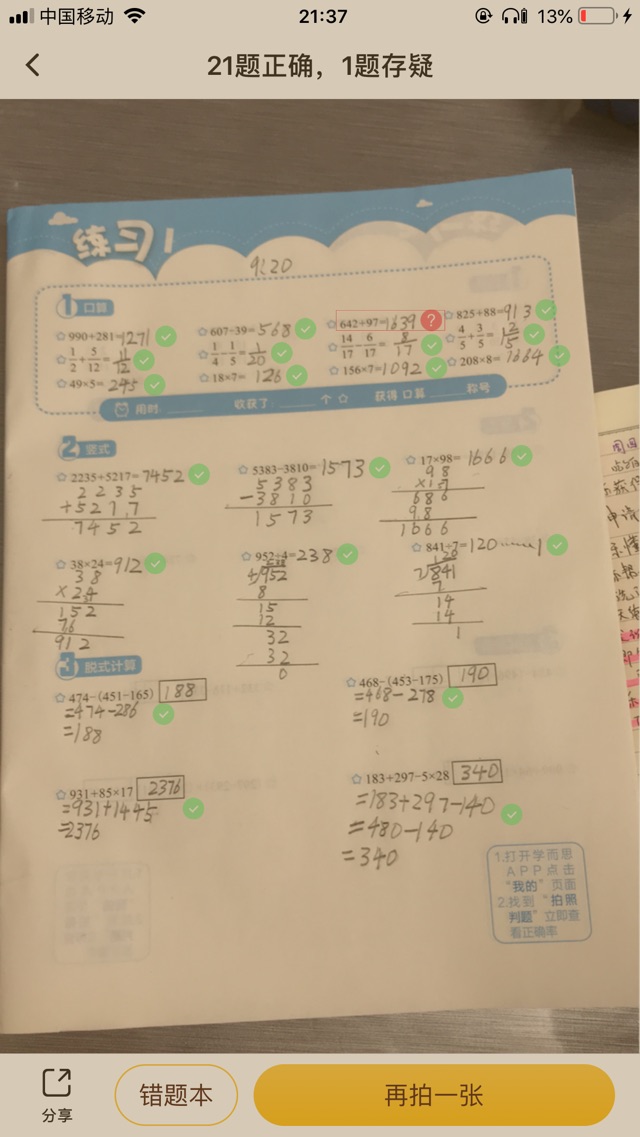 中国移动 21:37 13%
21题正确，1题存疑
练习1
9:20
1 口算
990+281=1271 607-39=568 642+97=1639 825+88=913
1/2+5/12=11/12 1/4-1/5=1/20 14/17-6/17=8/17 4/5+3/5=
49×5=245 18×7=126 156×7=1092 208×8=1664
用时 收获了 个 获得 口算 称号
2 竖式
2235+5217=7452 5383-3810=1573 17×98=1666
2235 5383 98
+5217 -3810 ×17
7452 1573 686
98
1666
38×24=912 952÷4=238 841÷7=120……1
38 238 120
×24 4 952 841
152 8 7
76 15 14
912 12 14
32 1
32
0
3 脱式计算
474-(451-165) 188 468-(453-175) 190
=474-286 =468-278
=188 =190
931+85×17 2376 183+297-5×28 340
=931+1445 =183+297-140
=2376 =480-140
=340
1.打开学而思
APP点击
“我的”页面
2.找到“拍照
判题”立即查
看正确率
分享
错题本
再拍一张